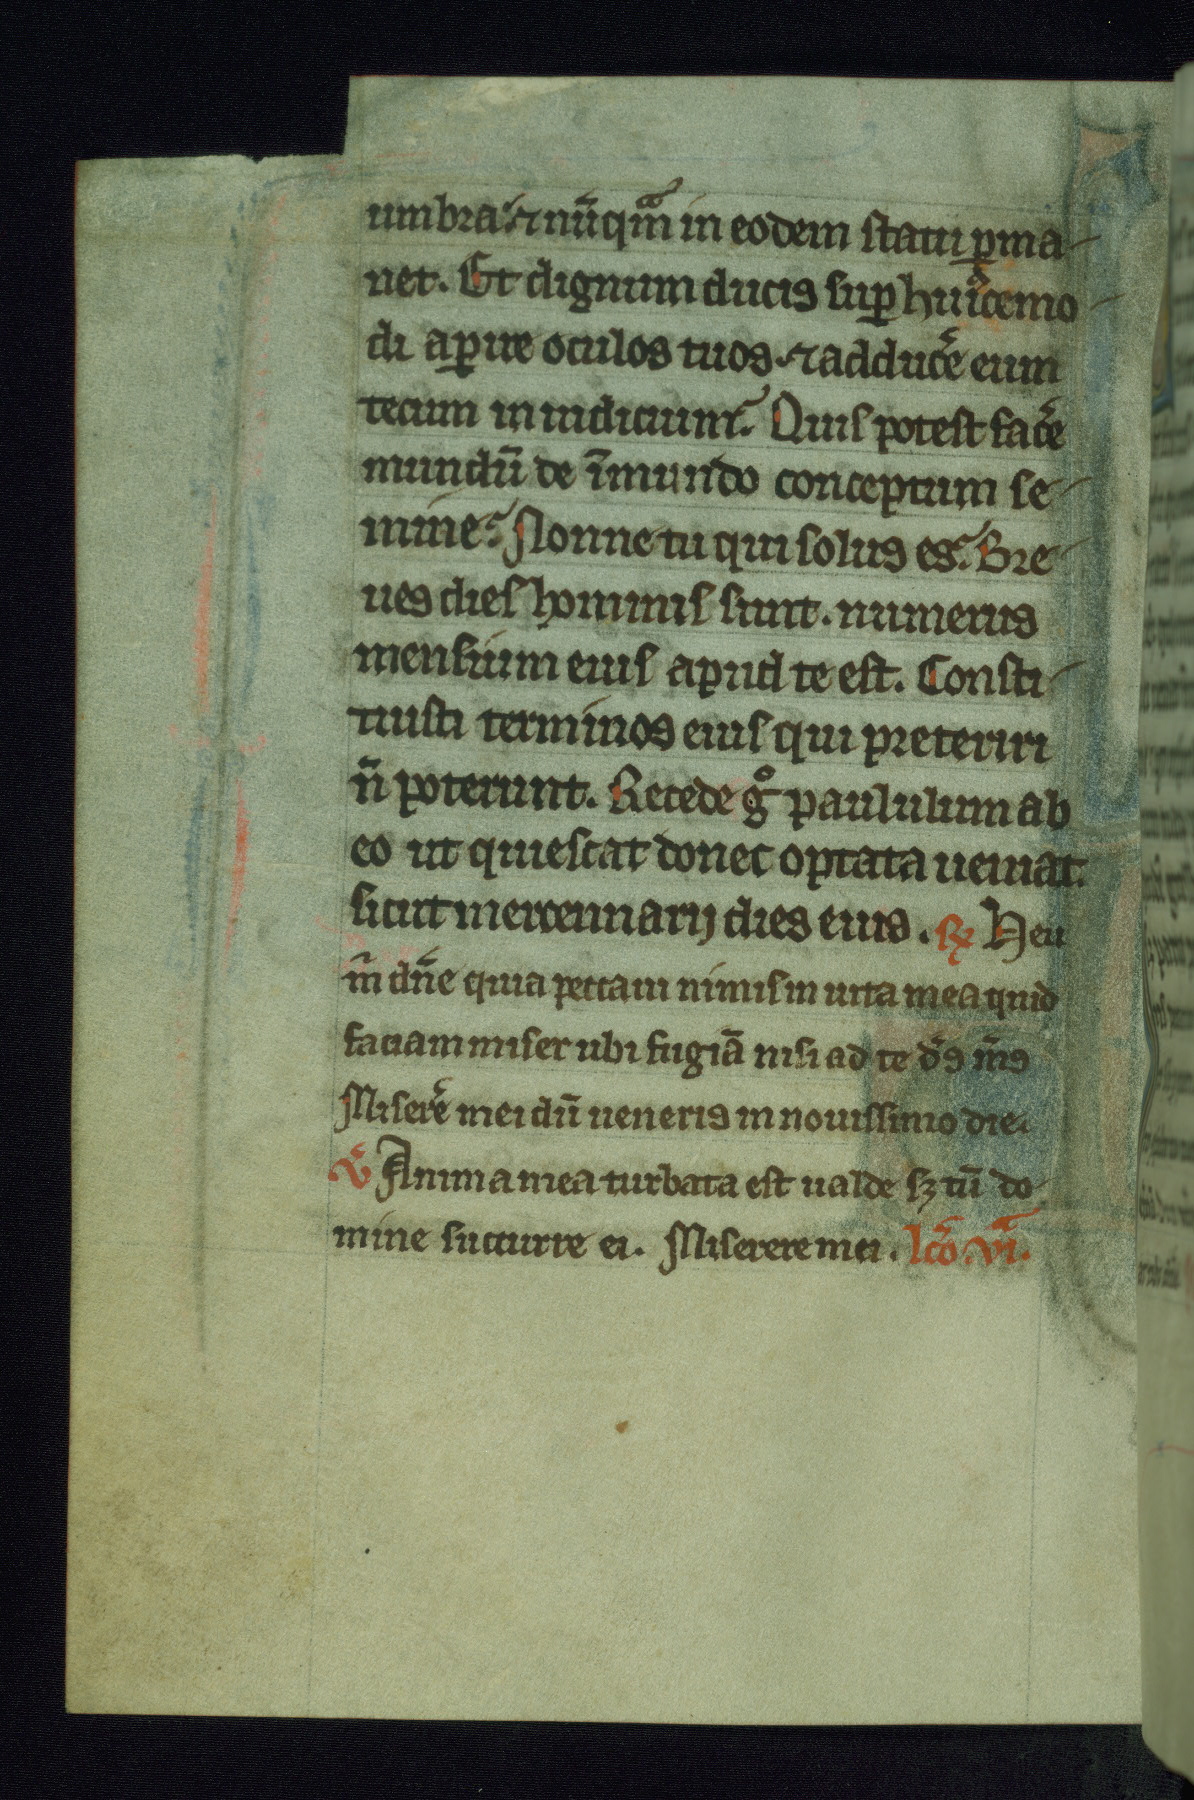 umbra. ⁊ nūq̄m in eodem statu ꝑma-
net. Et dignum ducis suꝑ hui᷒cemo-
di aꝑire oculos tuos. ⁊ adducē eum
tecum in iudicium. Quis potest facē
mundū de īmundo conceptum se-
mine. Nonne tu qui solus es. Bre-
ues dies hominis sunt. numerus
mensium eius apud te est. Consti-
tuisti terminos eius qui preteriri
n̄ poterunt. Recede gͦ paululum ab
eo ut quiescat donec optata ueniat.
sicut mercennarij dies eius. ℟ Heu
m̄ dn̄e quia peccaui nimis in uita mea quid
faciam miser ubi fugiā nisi ad te d̄s m̄s
Miserē mei dū ueneris in nouissimo die.
℣ Anima mea turbata est ualde sꝫ tū do
mine succurre ei. Miserere mei. lc̄o. vi.